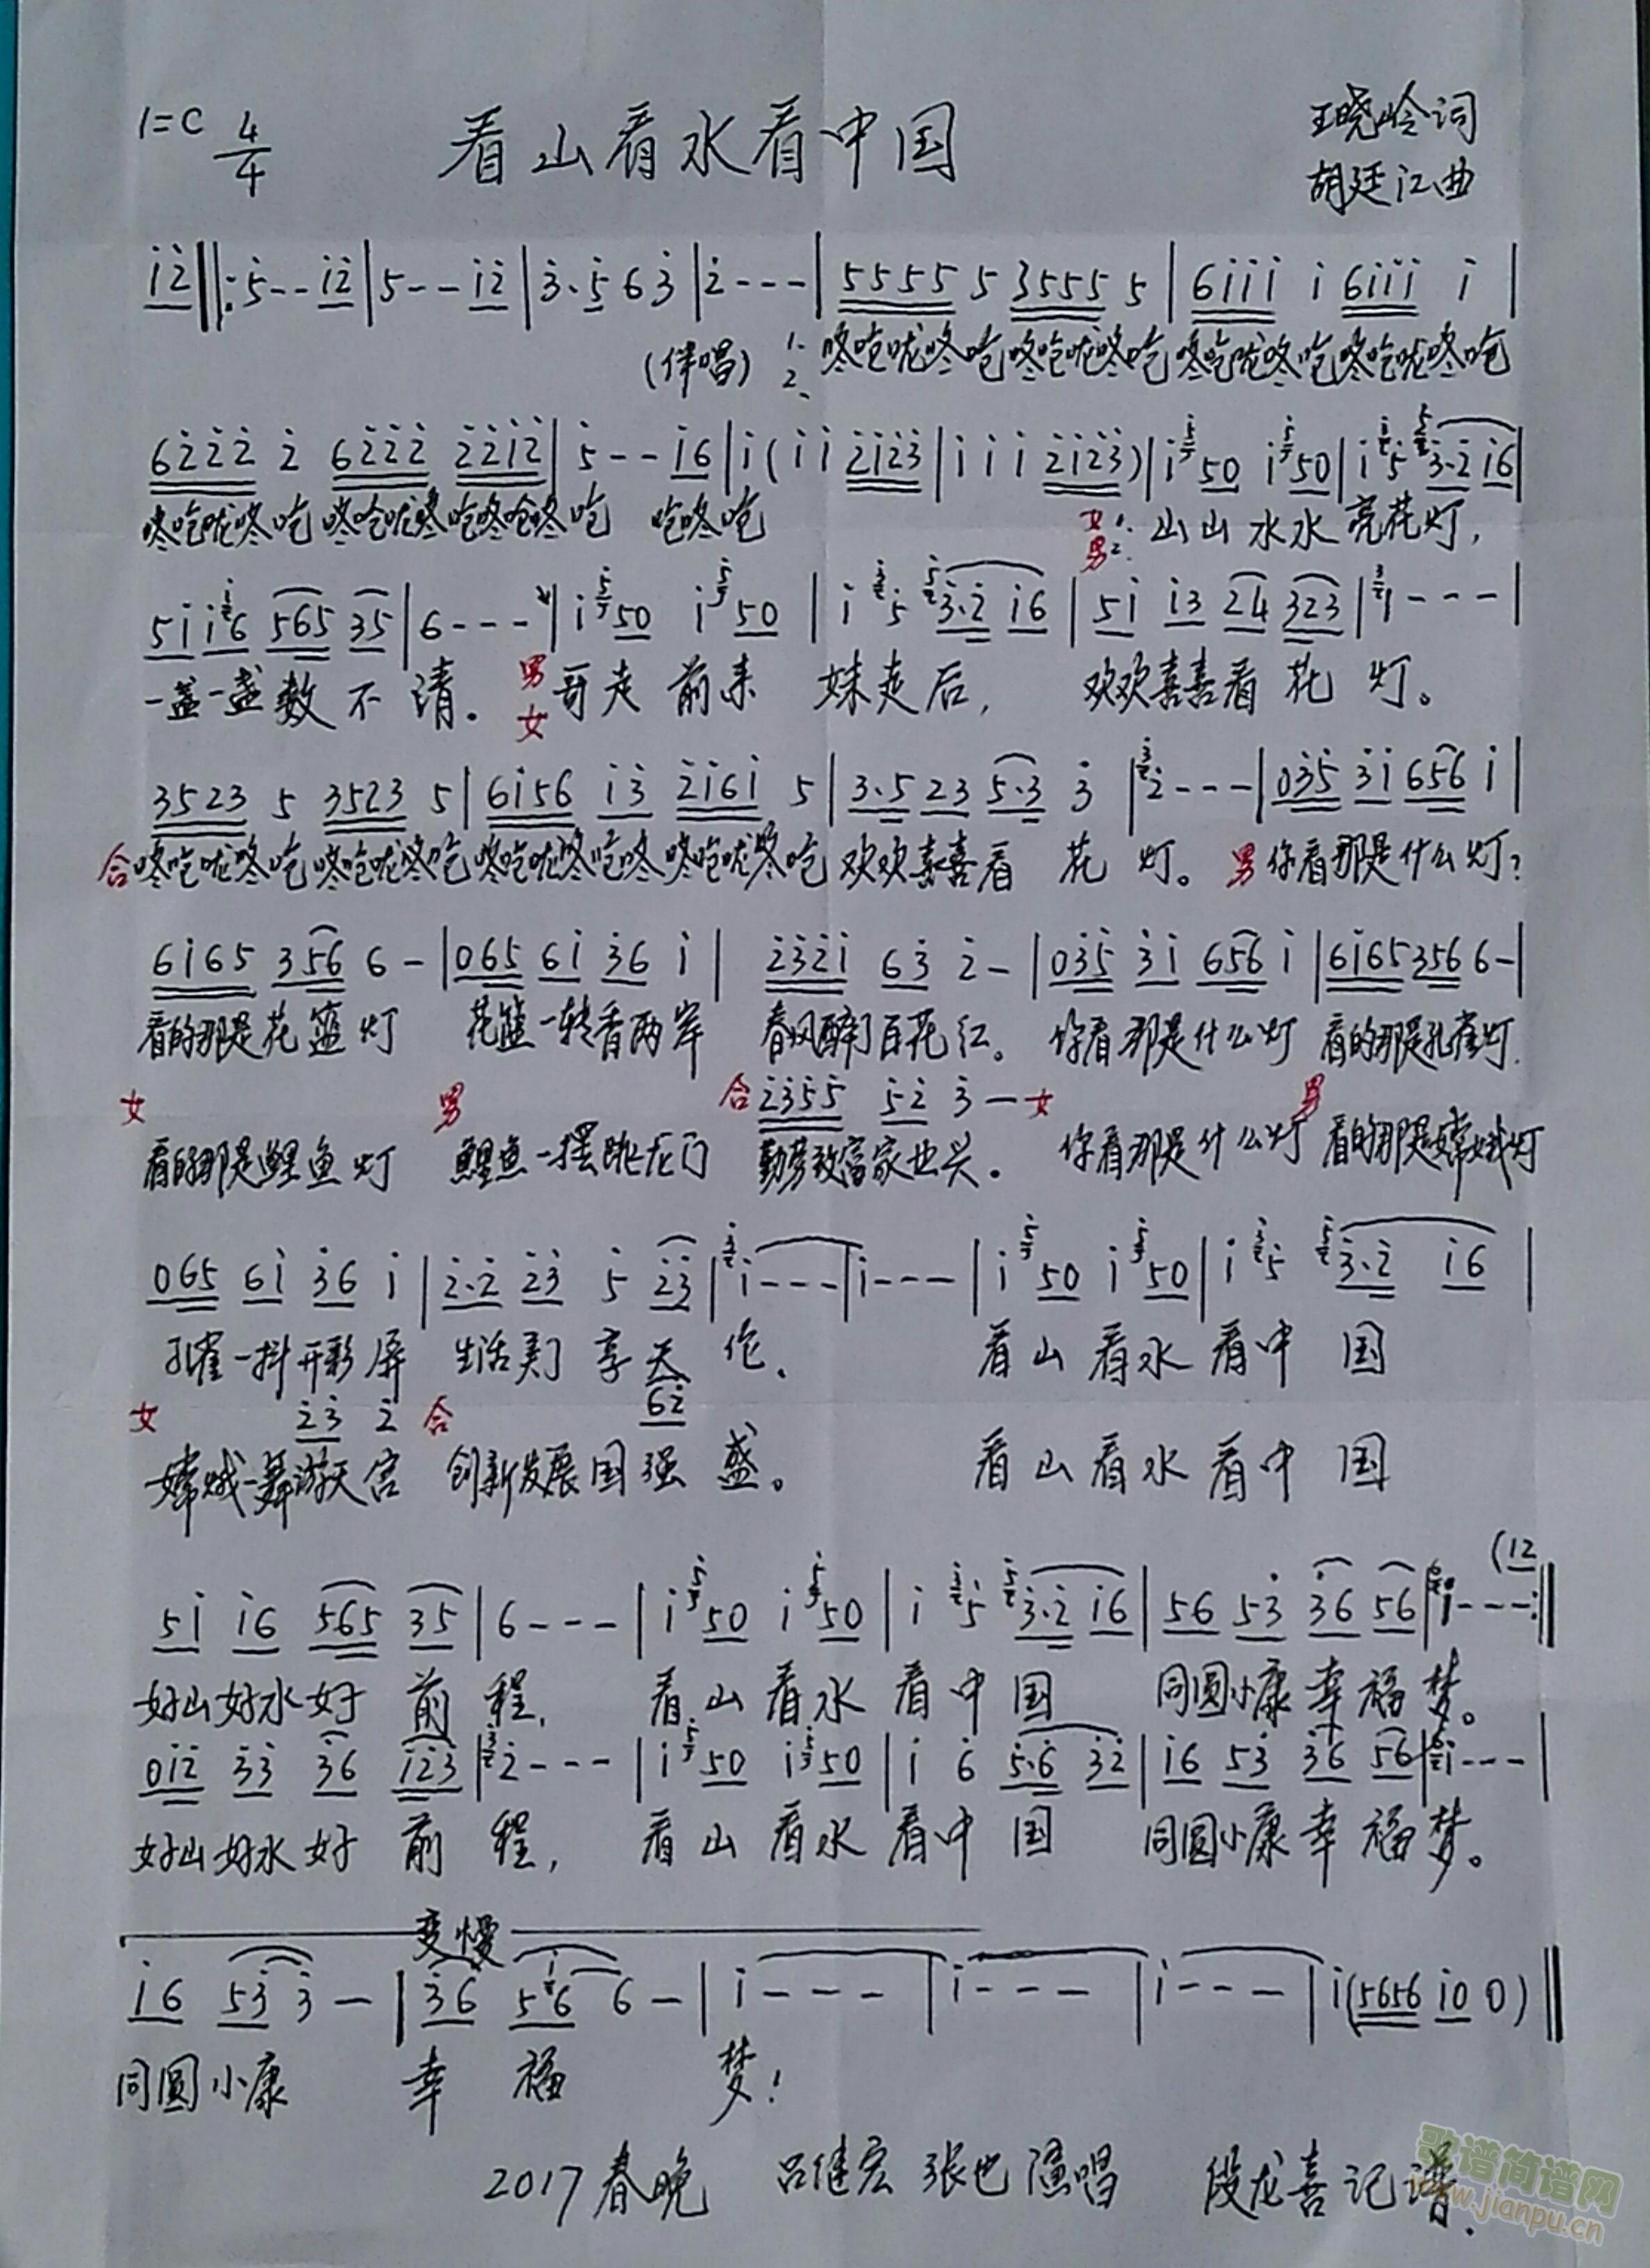 1=C 4/4 看山看水看中国 王晓岭词
胡廷江曲
i2||:5--i2|5--i2|3·563|2---|5555 5 3555 5|6iii i 6iii i|
(伴唱) 1. 咚呛咙咚呛咚呛咙咚呛咚呛咙咚呛咚呛咙咚呛
2、
6222 2 6222 22i2|5--i6|i(i i 2i23|i i i 2i23)|i50 i50|i5 3·2i6|
咚呛咙咚呛咚呛咙咚呛咚呛咚呛 呛咚呛 女1. 山山水水亮花灯,
男2.
5i i6 565 35|6---|i50 i50|i5 3·2 i6|5i i3 24 323|1---|
一盏一盏数不清. 男 哥走前来 妹走后, 欢欢喜喜看花灯。
女
3523 5 3523 5|6i56 i3 2i6i 5|3·5 23 5·3 3|2---|035 3i 656 i|
合 咚呛咙咚呛咚呛咙咚呛咚呛咙咚呛咚咚呛咙咚呛 欢欢喜喜看花灯。 男 你看那是什么灯?
6i65 356 6-|065 6i 36 i|232i 63 2-|035 3i 656 i|6i65 356 6-|
看的那是花篮灯 花篮一转香两岸 春风醉了百花红。 你看那是什么灯 看的那是孔雀灯.
女 男 合 2355 52 3- 女 男
看的那是鲤鱼灯 鲤鱼一摆跳龙门 勤劳致富家业兴。 你看那是什么灯 看的那是嫦娥灯
065 6i 36 i|2·2 23 5 23|i---|i---|i50 i50|i5 3·2 i6|
孔雀一抖开彩屏 生活美了享天伦. 看山看水看中国
女 23 2 合 62
嫦娥一舞游天宫 创新发展国强盛。 看山看水看中国
(12
5i i6 565 35|6---|i50 i50|i5 3·2 i6|56 53 36 56|i---:||
好山好水好前程, 看山看水看中国 同圆小康幸福梦。
0i2 33 36 i23|2---|i50 i50|i 6 5·6 32|i6 53 36 56|i---|
好山好水好前程, 看山看水看中国 同圆小康幸福梦。
变慢
i6 53 3-|36 56 6-|i---|i---|i---|i(5656 i0 0)||
同圆小康 幸福 梦!
2017春晚 吕继宏 张也演唱 段龙喜记谱.
歌谱简谱网
www.jianpu.cn